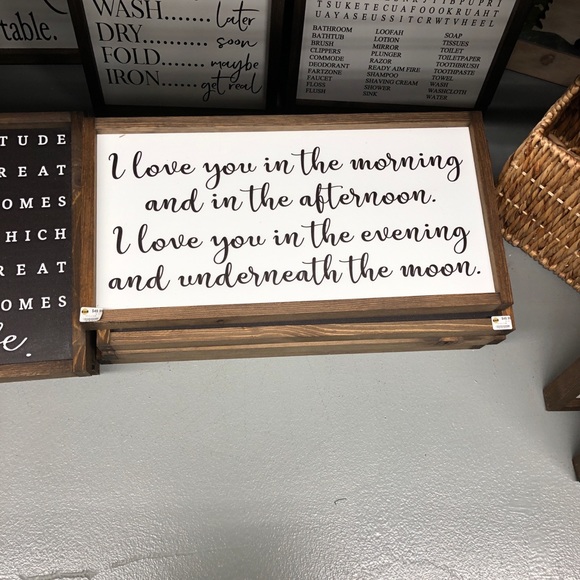 table.
WASH....... Later
DRY........... soon
FOLD......... maybe
IRON......... get real
TSUKETECUAFOOOKRUAHT
UAYASEUSSITCRWTVHEEL
BATHROOM LOOFAH SOAP
BATHTUB LOTION TISSUES
BRUSH MIRROR TOILET
CLIPPERS PLUNGER TOILETPAPER
COMMODE RAZOR TOOTHBRUSH
DEODORANT READY AIM FIRE TOOTHPASTE
FARTZONE SHAMPOO TOWEL
FAUCET SHAVING CREAM WASH
FLOSS SHOWER WASHCLOTH
FLUSH SINK WATER
TUDE
REAT
OMES
HICH
REAT
OMES
fe.
I love you in the morning
and in the afternoon.
I love you in the evening
and underneath the moon.